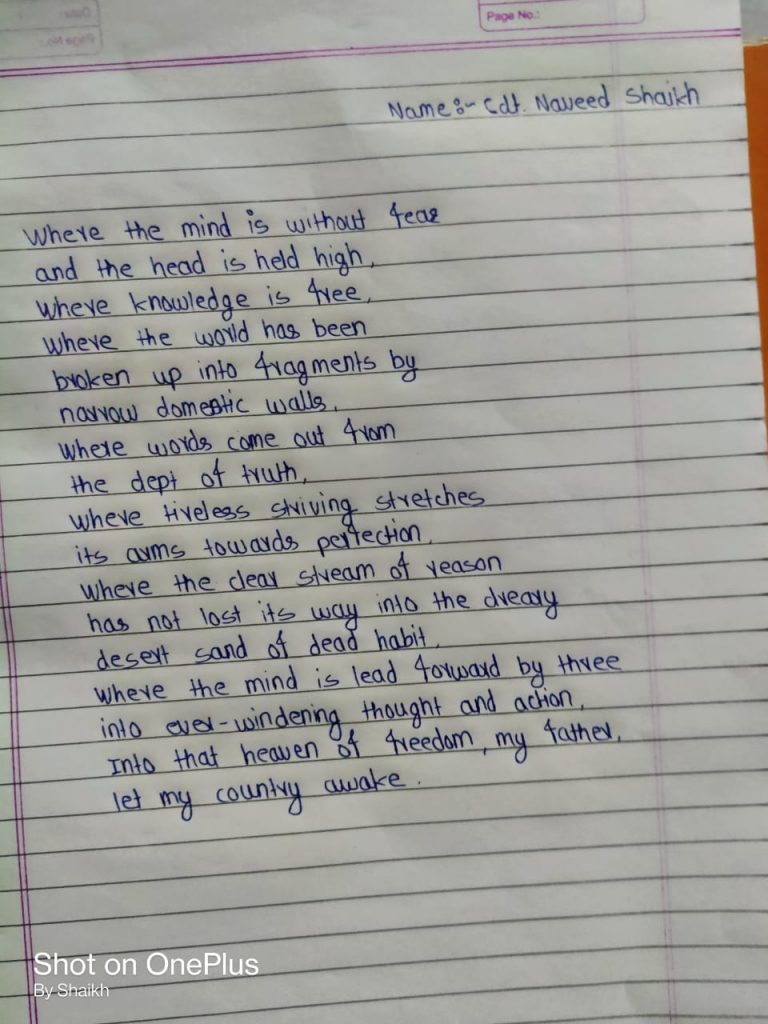 Page No.:
Date:
Page No.:
Name:- Cdt. Naveed Shaikh
Where the mind is without fear
and the head is held high,
where knowledge is free,
where the world has been
broken up into fragments by
narrow domestic walls,
where words come out from
the dept of truth,
where tireless striving stretches
its arms towards perfection,
where the clear stream of reason
has not lost its way into the dreary
desert sand of dead habit,
where the mind is lead forward by three
into ever-windering thought and action,
Into that heaven of freedom, my father,
let my country awake.
Shot on OnePlus
By Shaikh